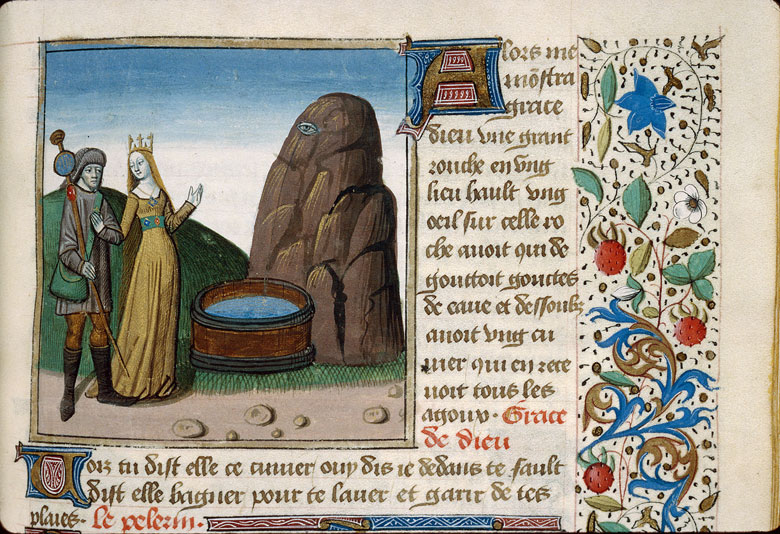 Alors me
mõstra
grace
dieu une grant
rouche en ung
lieu hault ung
oeil sur celle ro
che auoit qui de
gouttoit gouctes
de eaue et dessoubz
auoit ung cu
uier qui en rece
uoit tous les
agoux. Grace
de dieu
Uoiz tu dist elle ce cuuier ouy dis ie dedans te fault
dist elle bagner pour te lauer et garir de tes
plaies. Le pelerin.